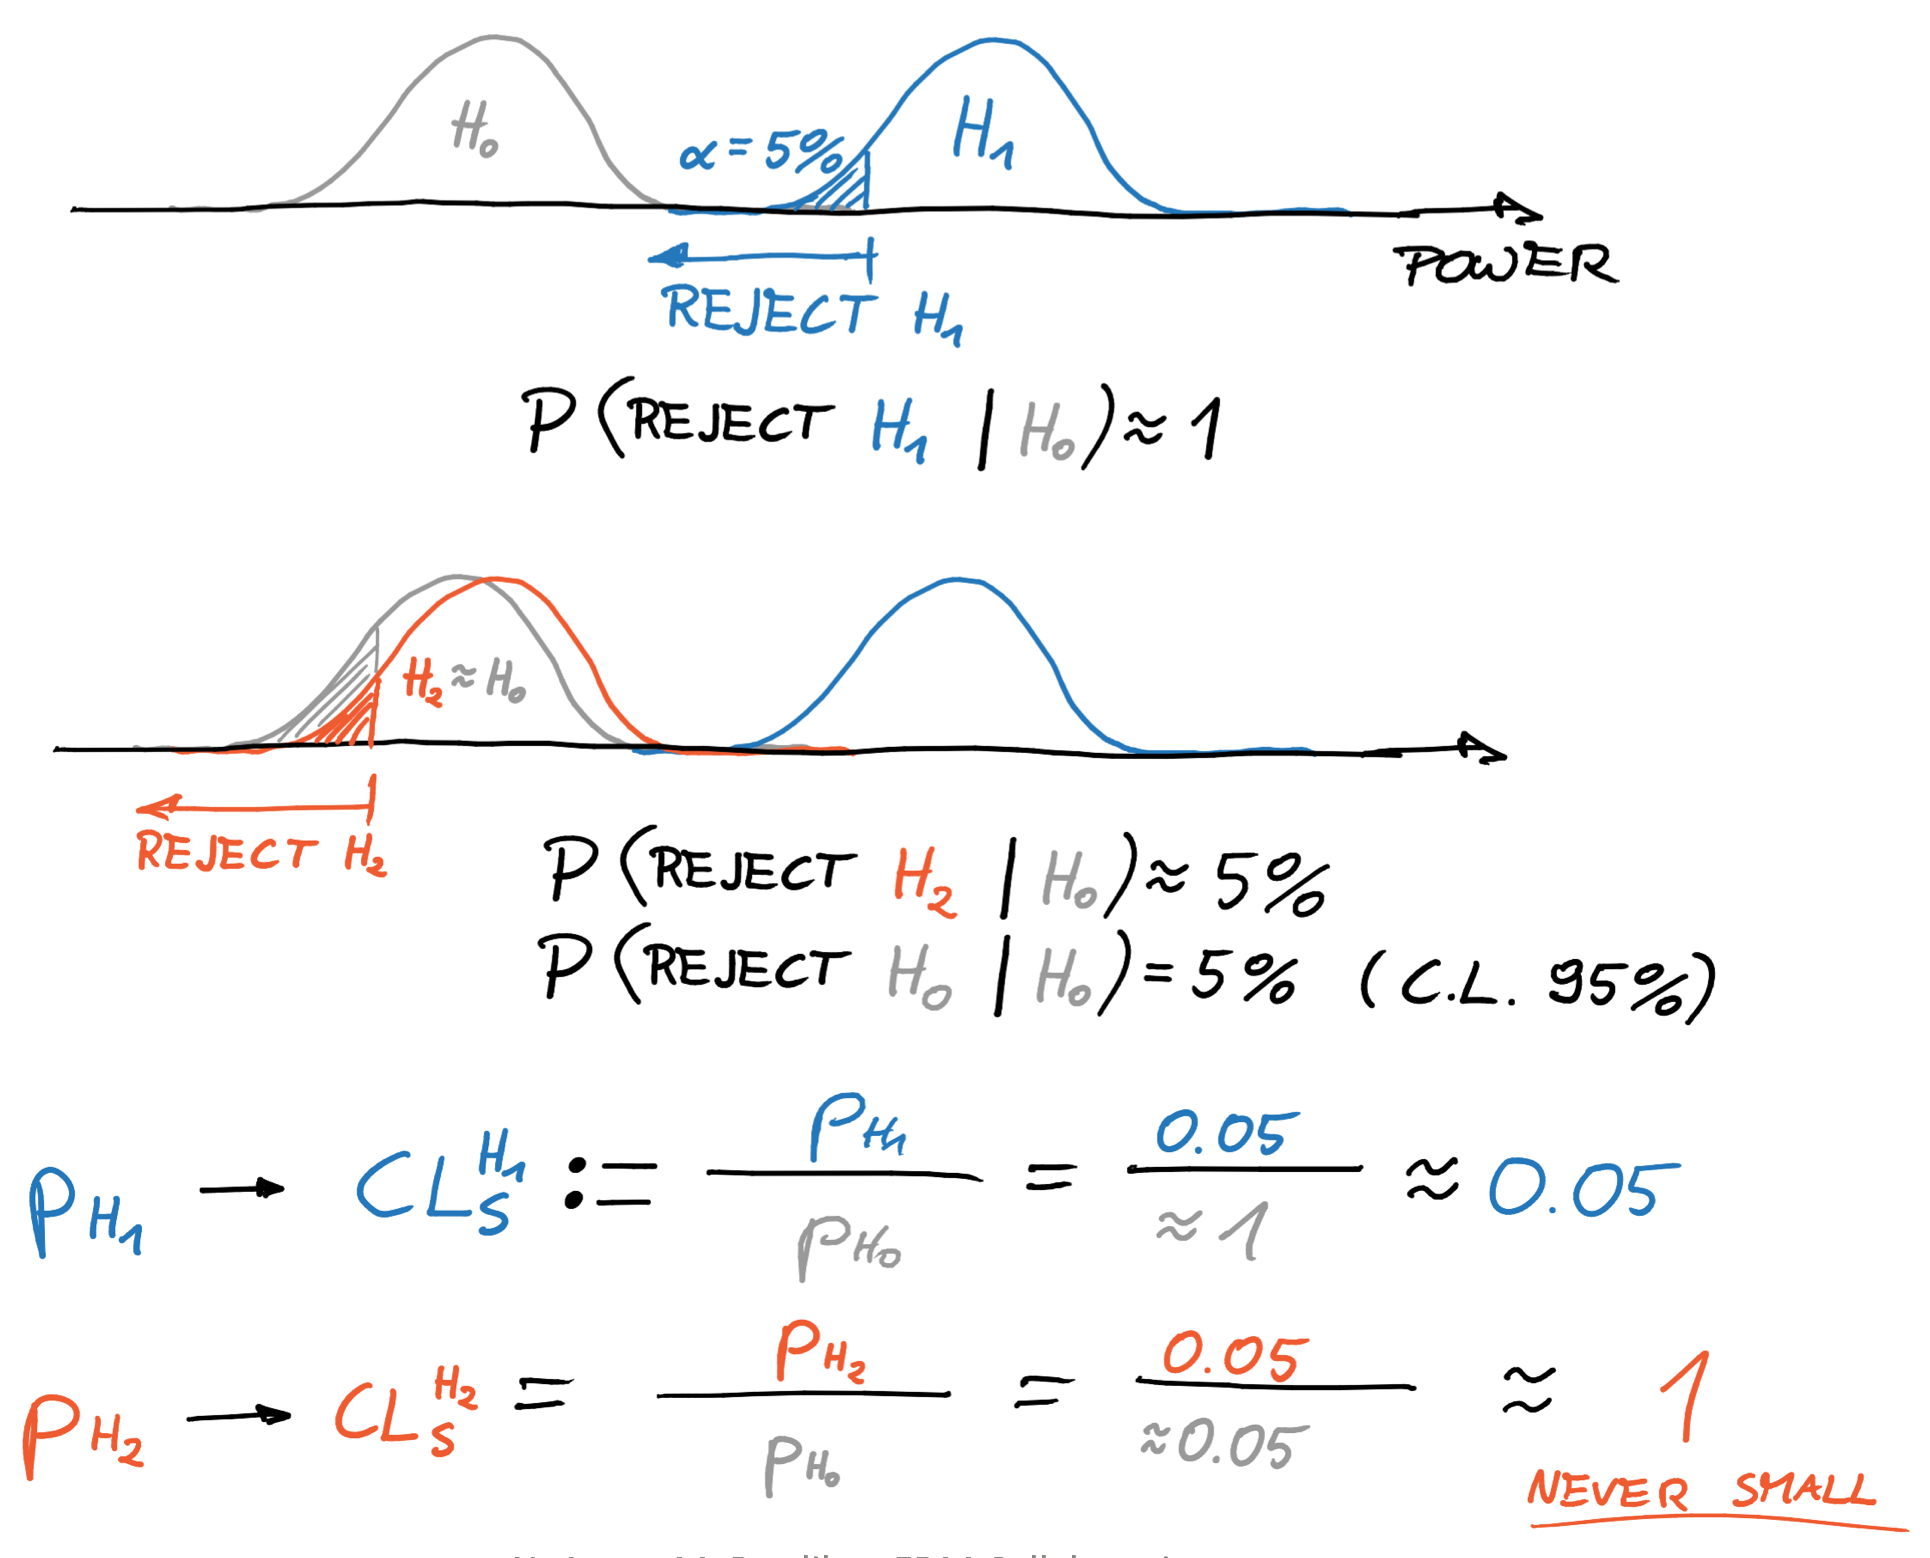 H₀
α = 5%
H₁
POWER
REJECT H₁
P(REJECT H₁ | H₀) ≈ 1
H₂ ≈ H₀
REJECT H₂
P(REJECT H₂ | H₀) ≈ 5%
P(REJECT H₀ | H₀) = 5% (C.L. 95%)
p_H₁ → CL_S^H₁ := p_H₁ / p_H₀ = 0.05 / ≈ 1 ≈ 0.05
p_H₂ → CL_S^H₂ = p_H₂ / p_H₀ = 0.05 / ≈ 0.05 ≈ 1
NEVER SMALL